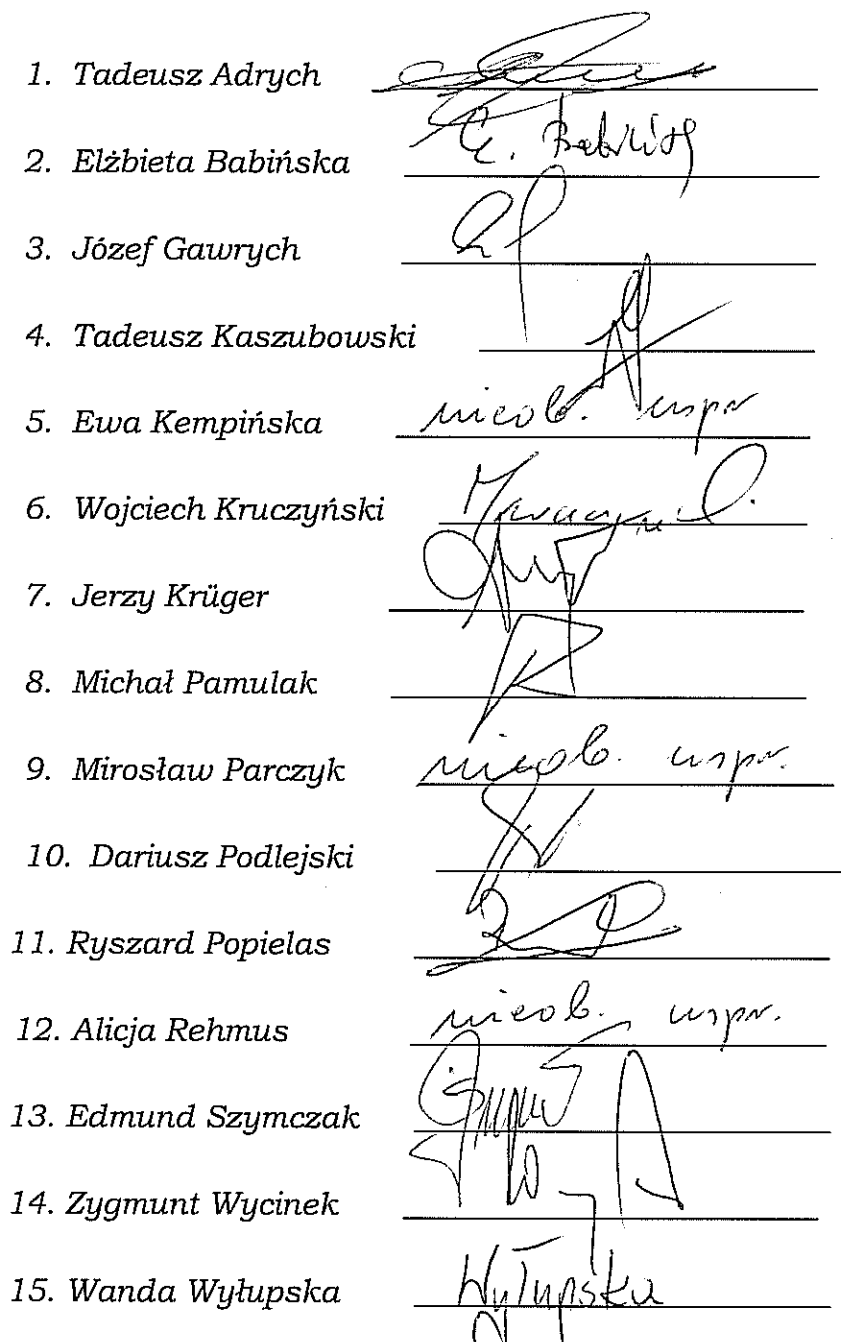 1. Tadeusz Adrych
2. Elżbieta Babińska
3. Józef Gawrych
4. Tadeusz Kaszubowski
5. Ewa Kempińska nieob. uspr
6. Wojciech Kruczyński
7. Jerzy Krüger
8. Michał Pamulak
9. Mirosław Parczyk nieob. uspr.
10. Dariusz Podlejski
11. Ryszard Popielas
12. Alicja Rehmus nieob. uspr.
13. Edmund Szymczak
14. Zygmunt Wycinek
15. Wanda Wyłupska Wyłupska